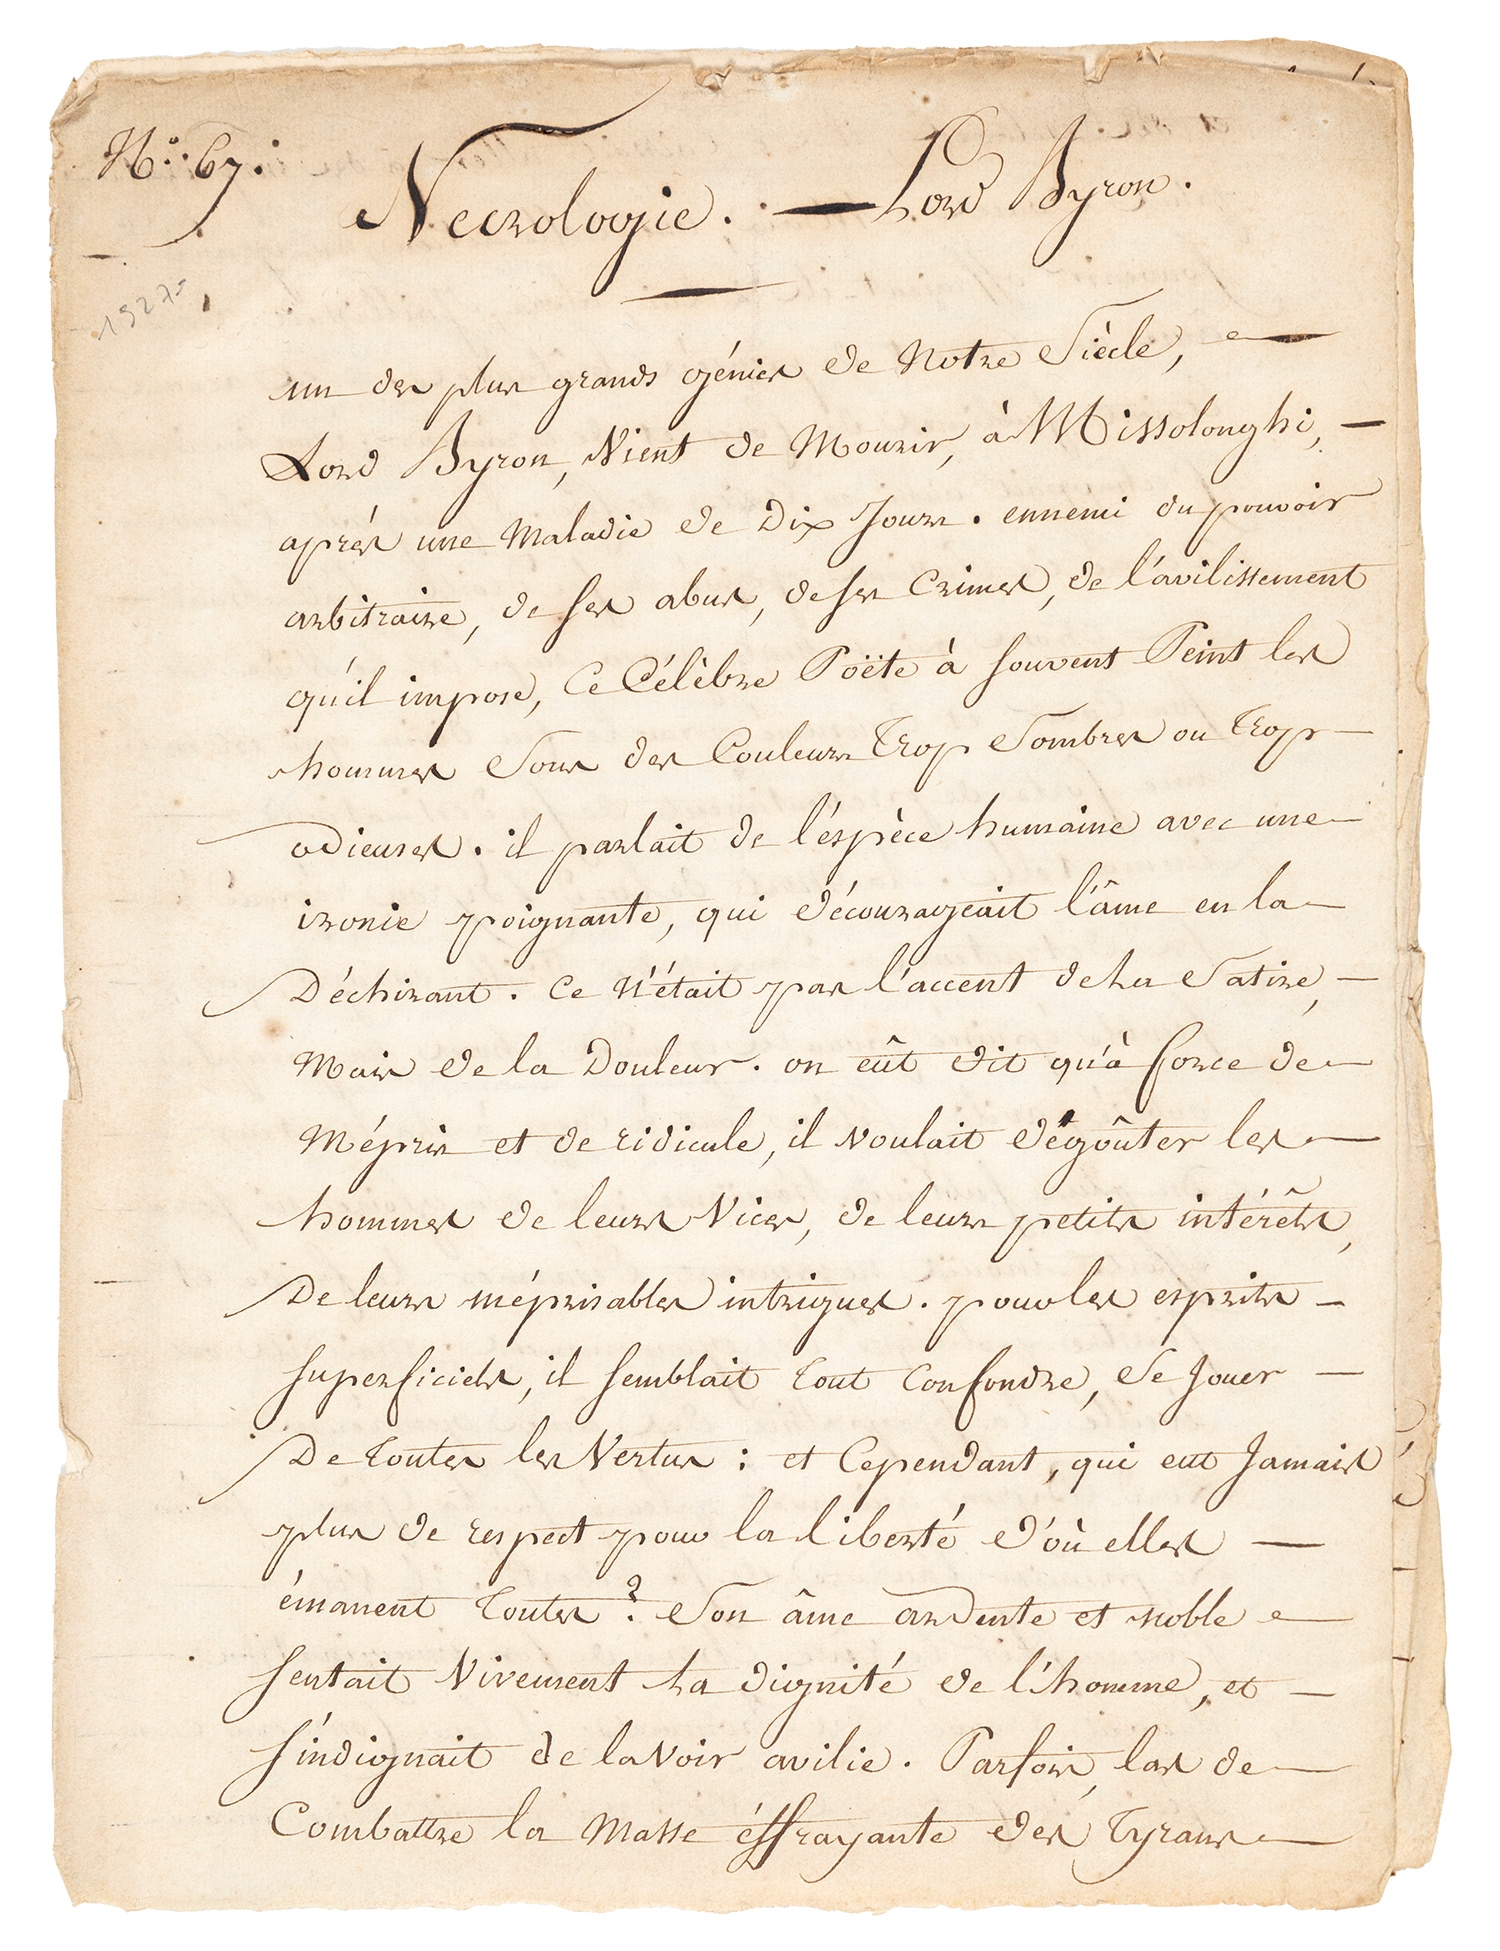 N.º 67.
Necrologie. — Lord Byron.
19275
un des plus grands génies de Notre Siècle,
Lord Byron, Vient de Mourir, à Missolonghi, —
aprés une Maladie de Dix Jours. ennemi du pouvoir
arbitraire, de ses abus, de ses Crimes, de l'avilissement
qu'il impose, Ce Célèbre Poëte à souvent Peint les
hommes Sous des Couleurs Trop Sombres ou Trop —
odieuses. il parlait de l'éspèce humaine avec une —
ironie poignante, qui décourageait l'âme en la —
Déchirant. Ce N'était pas l'accent de la Satire, —
Mais de la Douleur. on eût dit qu'à force de —
Mépris et de ridicule, il Voulait dégoûter les —
hommes de leurs Vices, de leurs petits intérêts,
De leurs méprisables intrigues. pour les esprits —
superficiels, il semblait Tout Confondre, Se Jouer —
De Toutes les Vertus : et Cependant, qui eut Jamais
plus de respect pour la liberté d'où elles —
émanent Toutes ? Son âme ardente et noble —
sentait Vivement la dignité de l'homme, et —
s'indignait de la Voir avilie. Parfois, las de —
Combattre la Masse éffrayante des Tyrans —